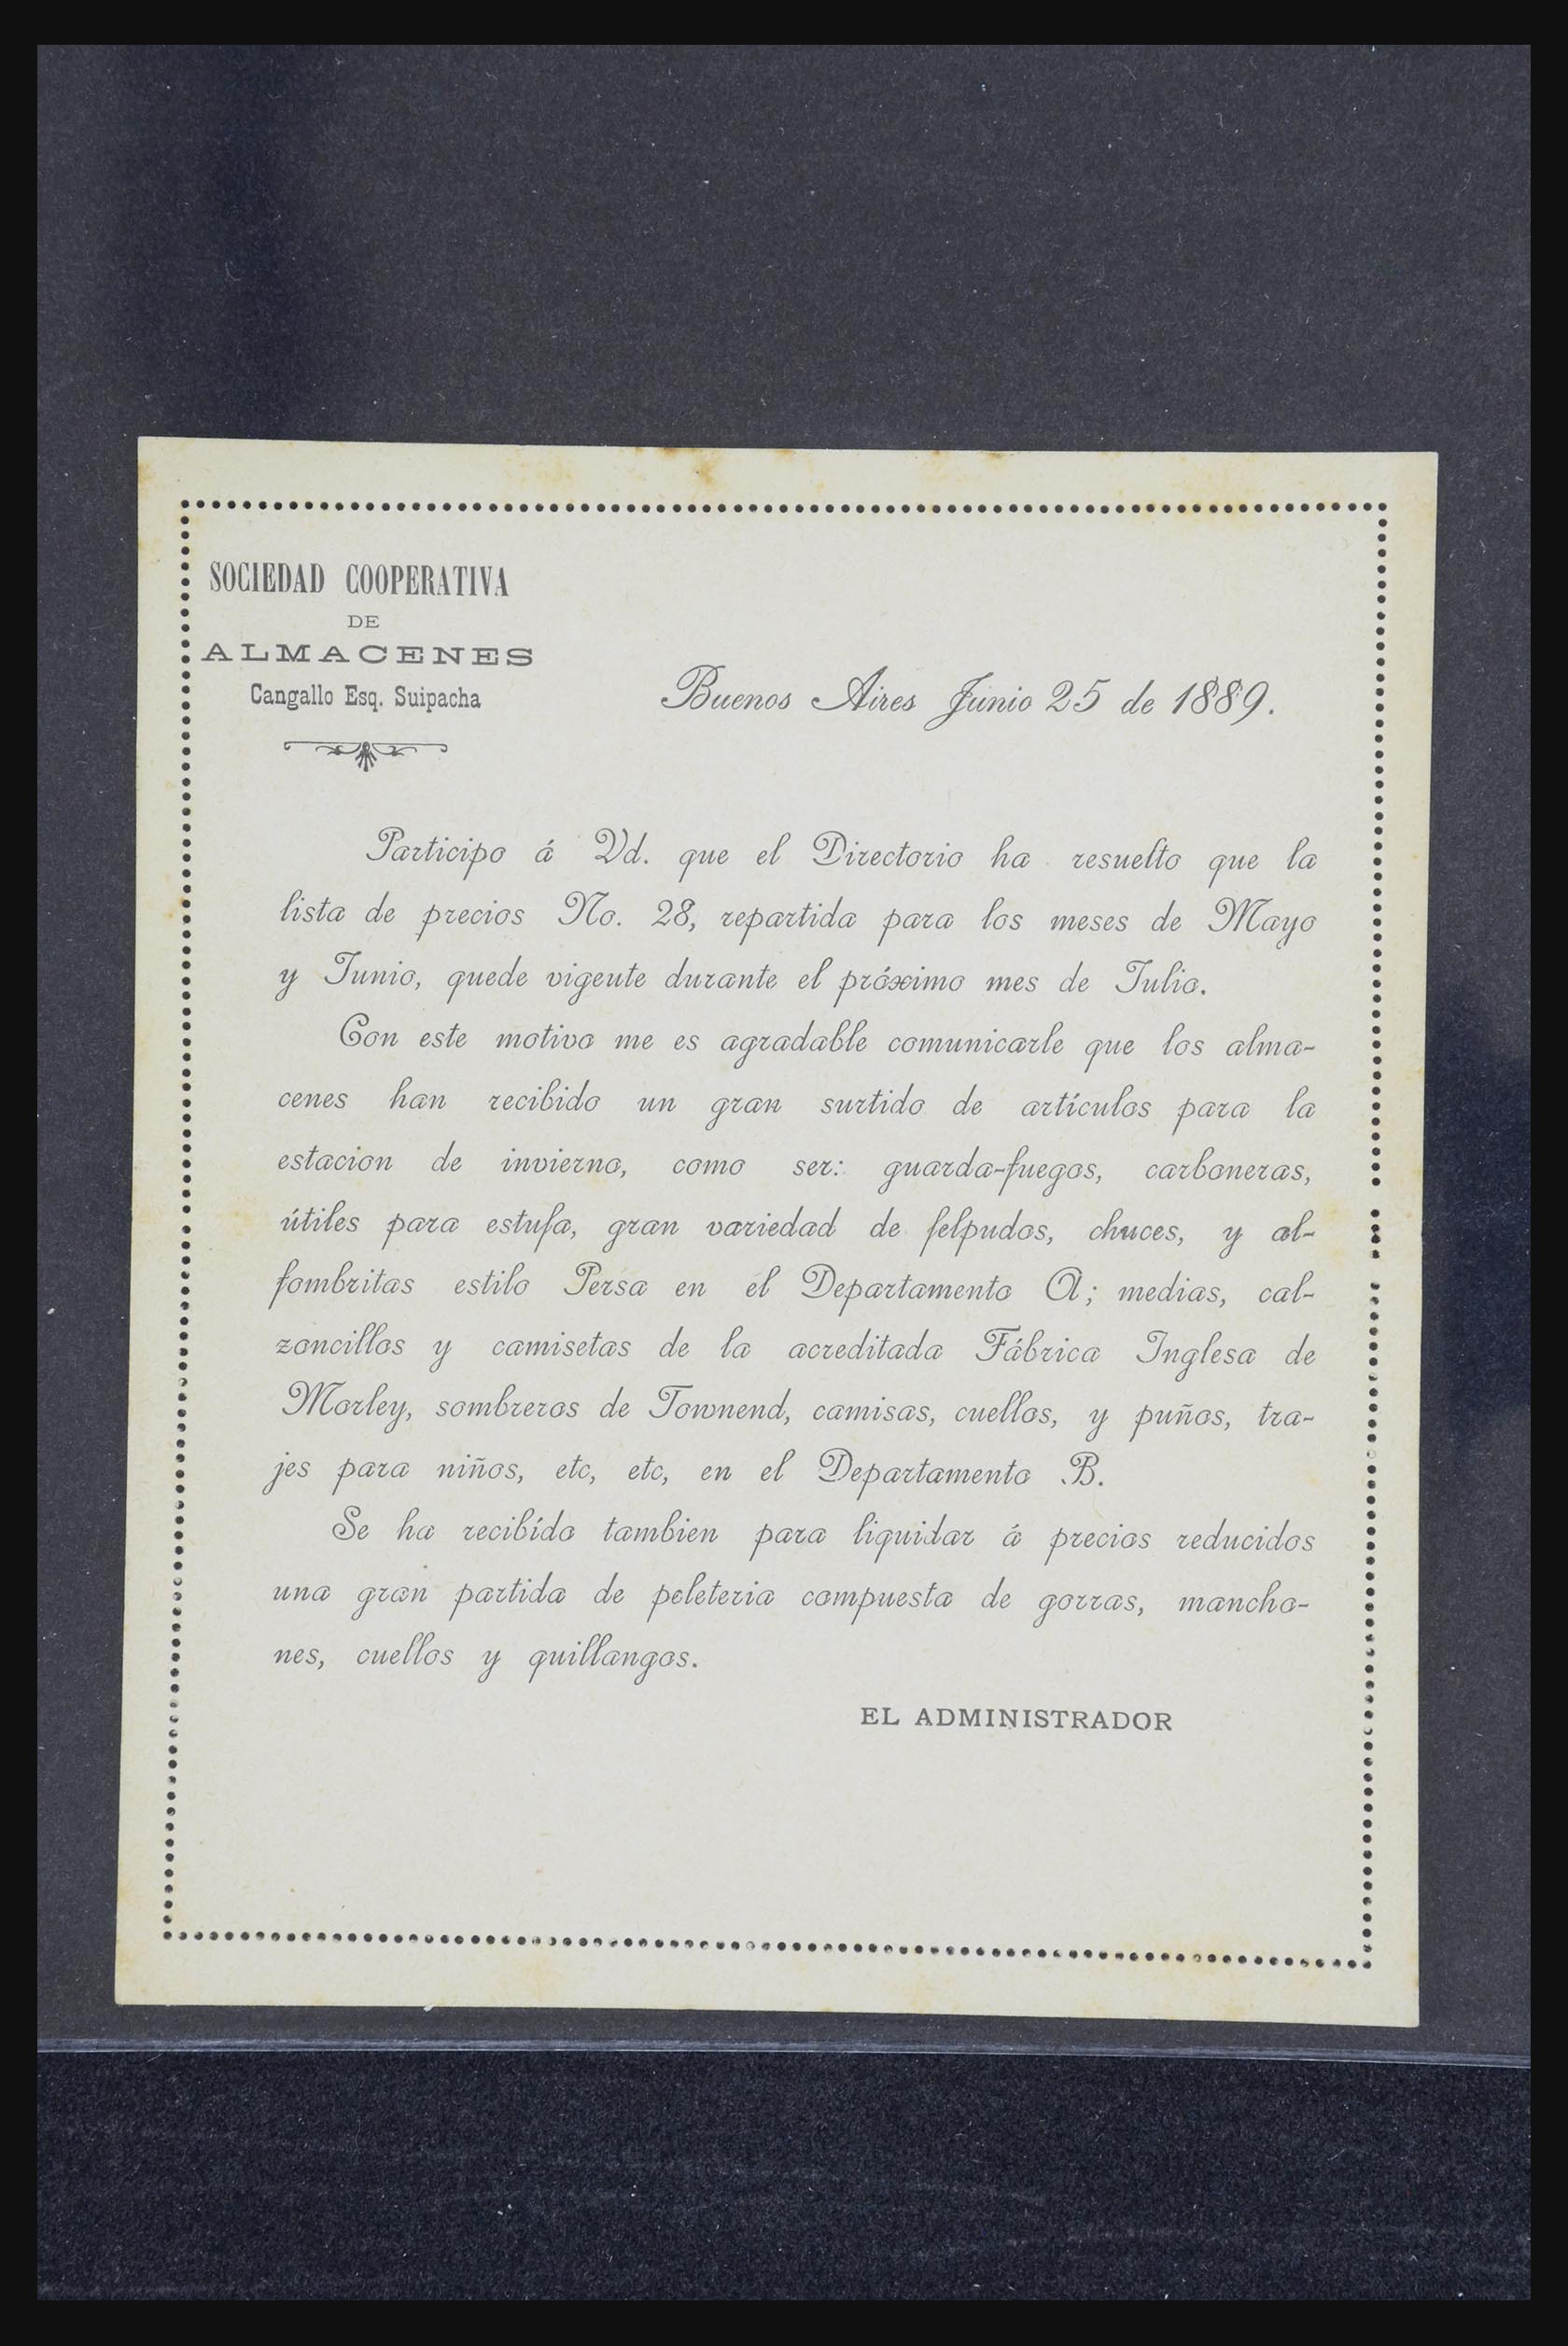 SOCIEDAD COOPERATIVA
DE
ALMACENES
Cangallo Esq. Suipacha
Buenos Aires Junio 25 de 1889.
Participo á Vd. que el Directorio ha resuelto que la
lista de precios No. 28, repartida para los meses de Mayo
y Junio, quede vigeute durante el próximo mes de Julio.
Con este motivo me es agradable comunicarle que los alma-
cenes han recibido un gran surtido de artículos para la
estacion de invierno, como ser: guarda-fuegos, carboneras,
útiles para estufa, gran variedad de felpudos, chuces, y al-
fombritas estilo Persa en el Departamento A; medias, cal-
zoncillos y camisetas de la acreditada Fábrica Inglesa de
Morley, sombreros de Townend, camisas, cuellos, y puños, tra-
jes para niños, etc, etc, en el Departamento B.
Se ha recibído tambien para liquidar á precios reducidos
una gran partida de peleteria compuesta de gorras, mancho-
nes, cuellos y quillangos.
EL ADMINISTRADOR